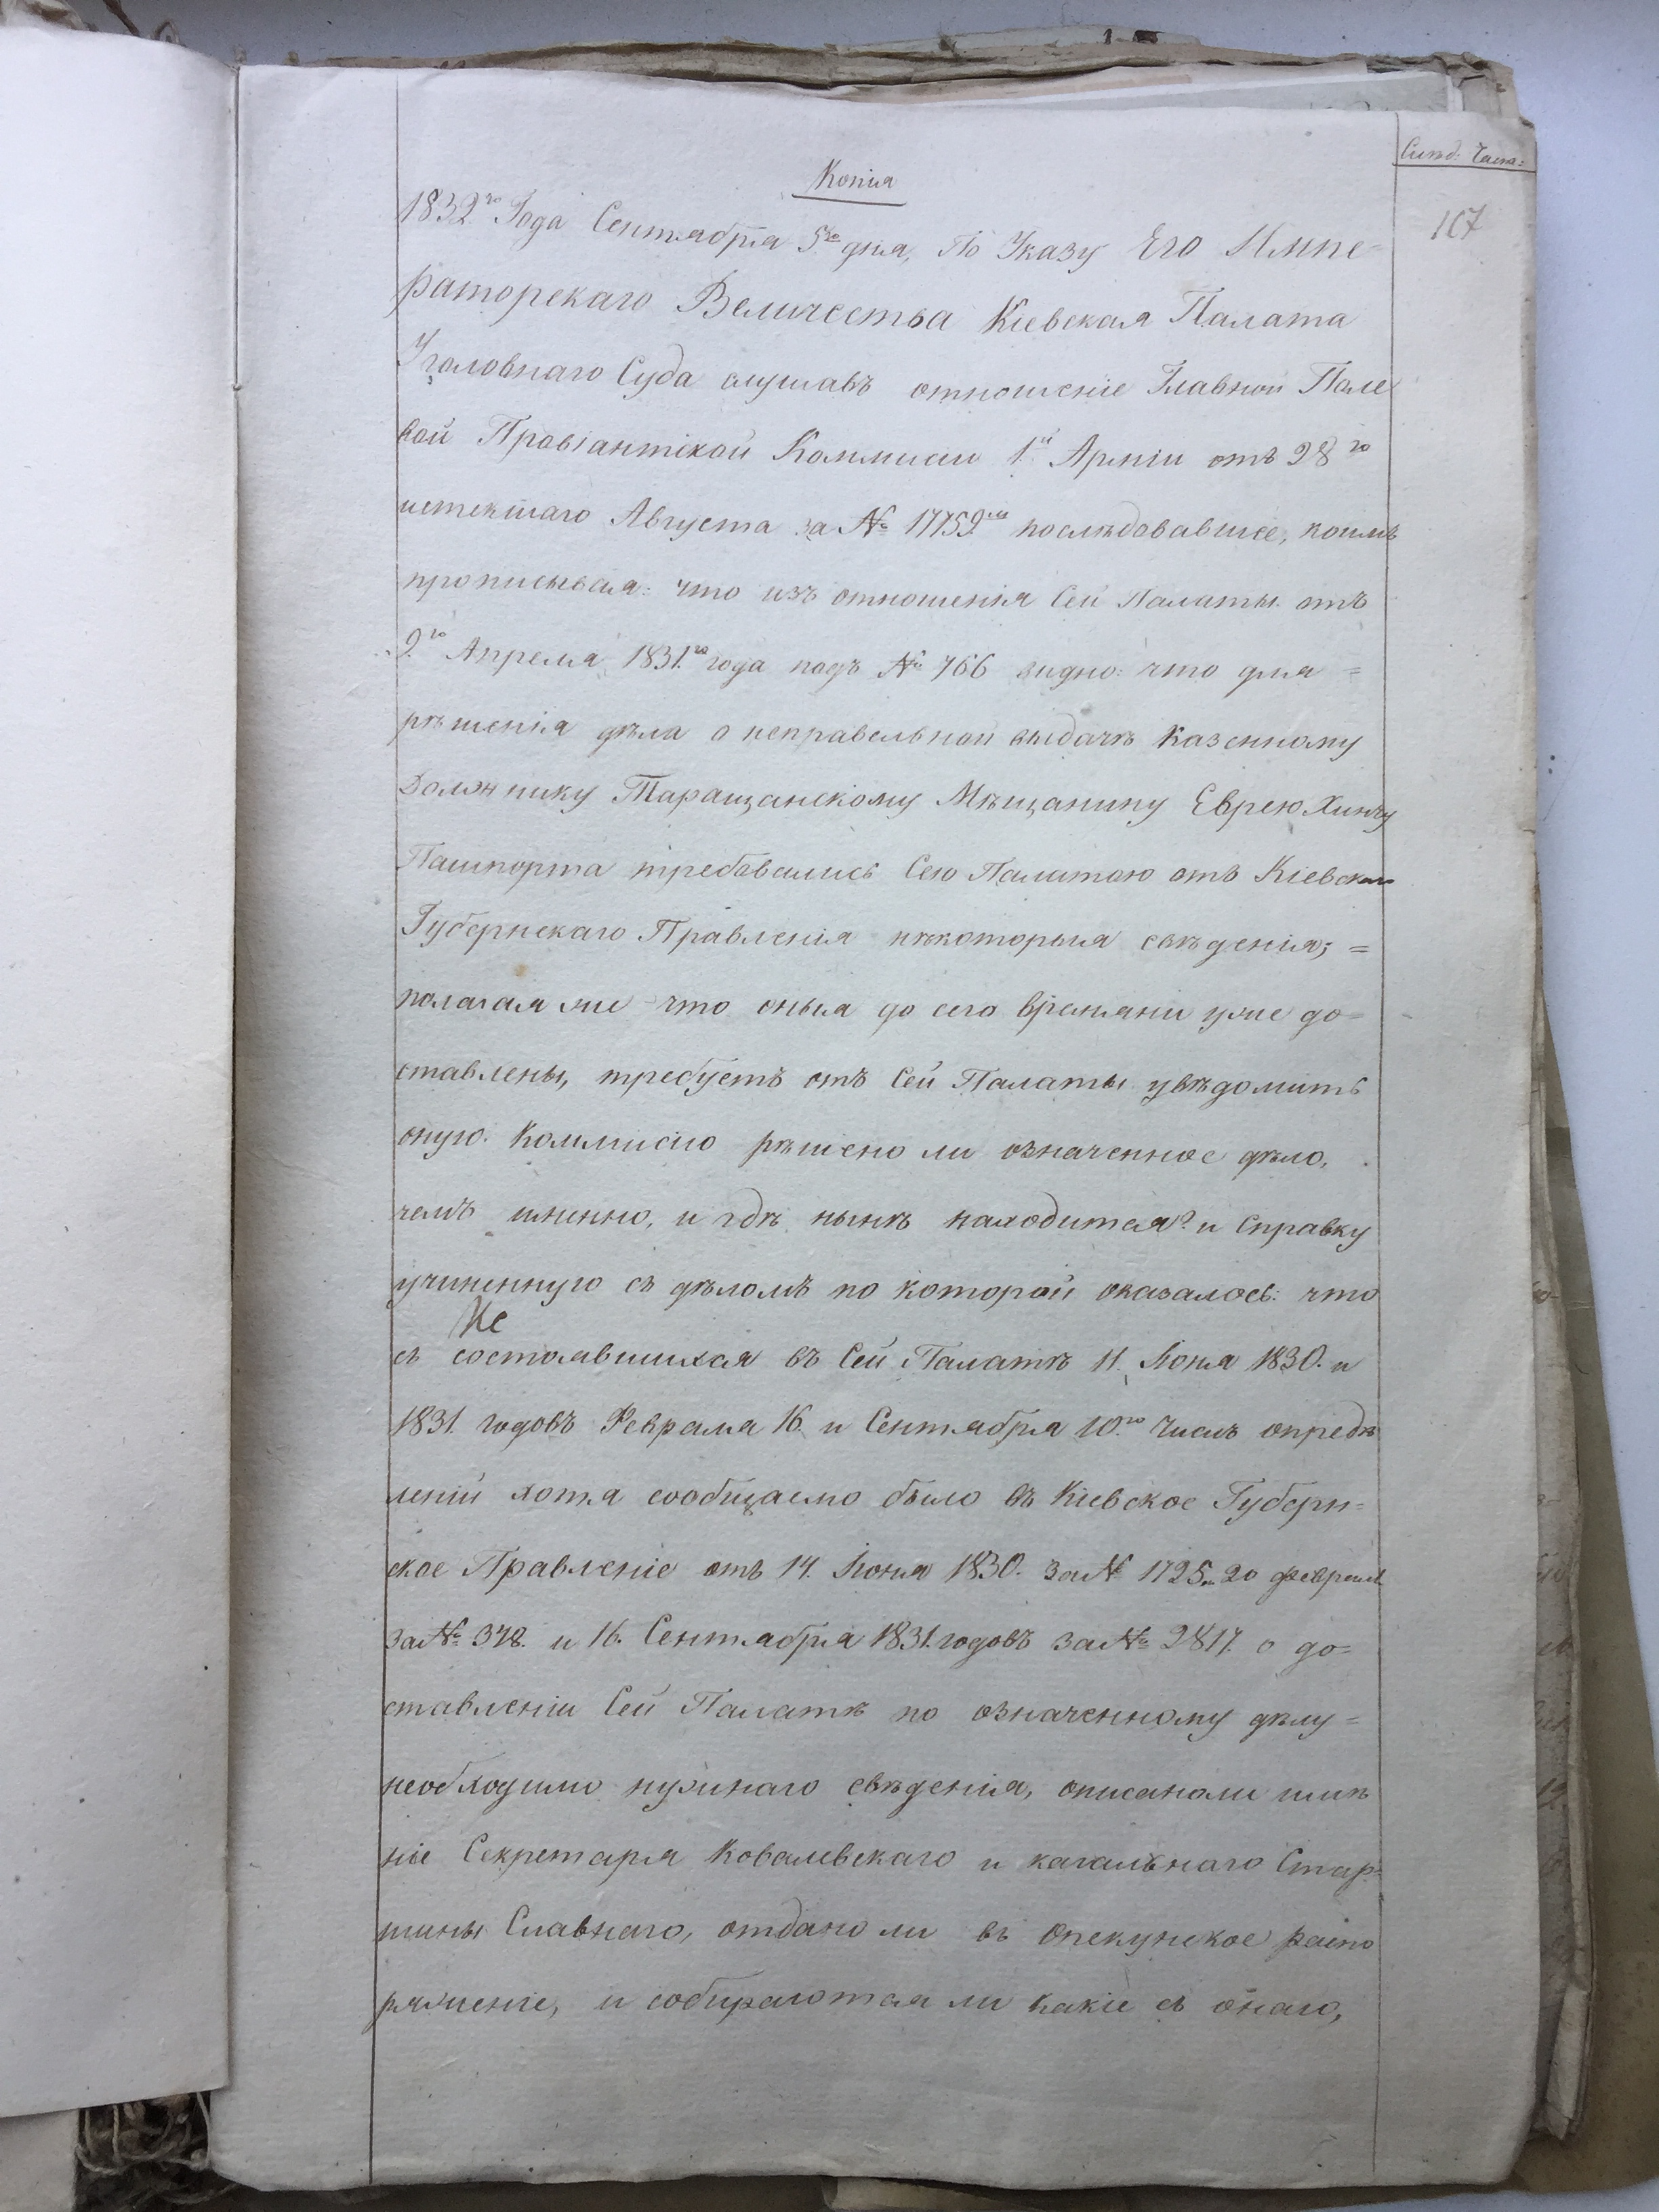 Слѣд: Часть:
167
Копія
1832го Года Сентября 5го дня, По Указу Его Импе-
раторскаго Величества Кіевская Палата
Уголовнаго Суда слушавъ отношеніе Главной Поле
вой Провіантской Коммисіи 1й Арміи отъ 28го
истекшаго Августа за № 17759мъ послѣдовавшее, коимъ
прописывая: что изъ отношенія Сей Палаты отъ
9го Апреля 1831го года подъ № 766 видно: что для =
рѣшенія дѣла о неправельной выдачѣ Казенному
Должнику Таращанскому Мѣщанину Еврею Хинчу
Пашпорта требовались Сею Палатою отъ Кіевскаго
Губернскаго Правленія нѣкоторыя свѣденія; =
полагая же что оныя до сего времяни уже до=
ставлены, требуетъ отъ Сей Палаты увѣдомить
оную Коммисію рѣшено ли означенное дѣло,
чемъ именно, и гдѣ нынѣ находится? и Справку
учиненную съ дѣломъ по которой оказалось: что
Не
съ состоявшихся въ Сей Палатѣ 11. Іюня 1830. и
1831. годовъ Февраля 16. и Сентября 10го Числъ опредѣ
леній хотя сообщаемо было въ Кіевское Губерн=
ское Правленіе отъ 14. Іюня 1830. За № 1725. 20 февраля
За № 378. и 16. Сентября 1831. годовъ За № 2817. о до=
ставленіи Сей Палатѣ по означенному дѣлу =
необходимо нужнаго свѣденія, описаноли имѣ
ніе Секретаря Ковалевскаго и кагальнаго Стар=
шины Славнаго, отдано ли въ Опекунское распо
ряженіе, и собираются ли какіе съ онаго,